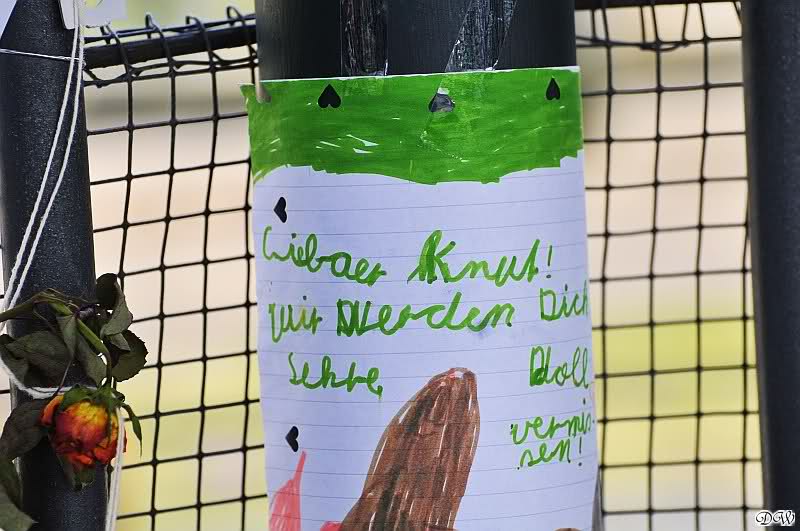 Liebaer Knut!
wir Werden Dich
Sehre Doll
vermis-
sen!
DW